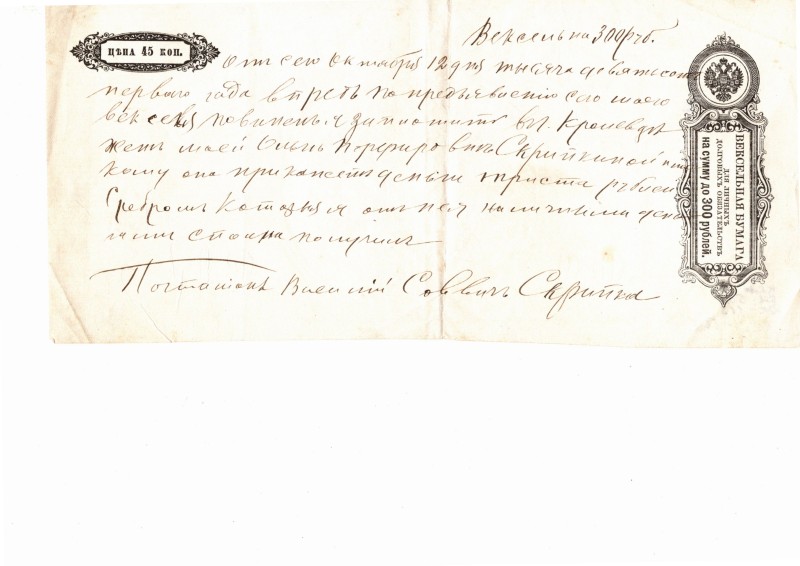 ЦѢНА 45 КОП.
Вексель на 300 руб.
Отъ сего Октября 12 дня тысяча девятьсотъ
перваго года впредь по предъявленію сего моего
векселя повиненъ я заплатить въ г. Кролевцѣ
женѣ моей Порфировнѣ Скрипкиной или
кому она прикажетъ деньги триста рублей
серебромъ которыя я отъ ней наличными день
гами сполна получилъ
Василій Саввичъ Скрипка
ВЕКСЕЛЬНАЯ БУМАГА
ДЛЯ ЛИЧНЫХЪ
ДОЛГОВЫХЪ ОБЯЗАТЕЛЬСТВЪ
НА СУММУ ДО 300 РУБЛЕЙ.